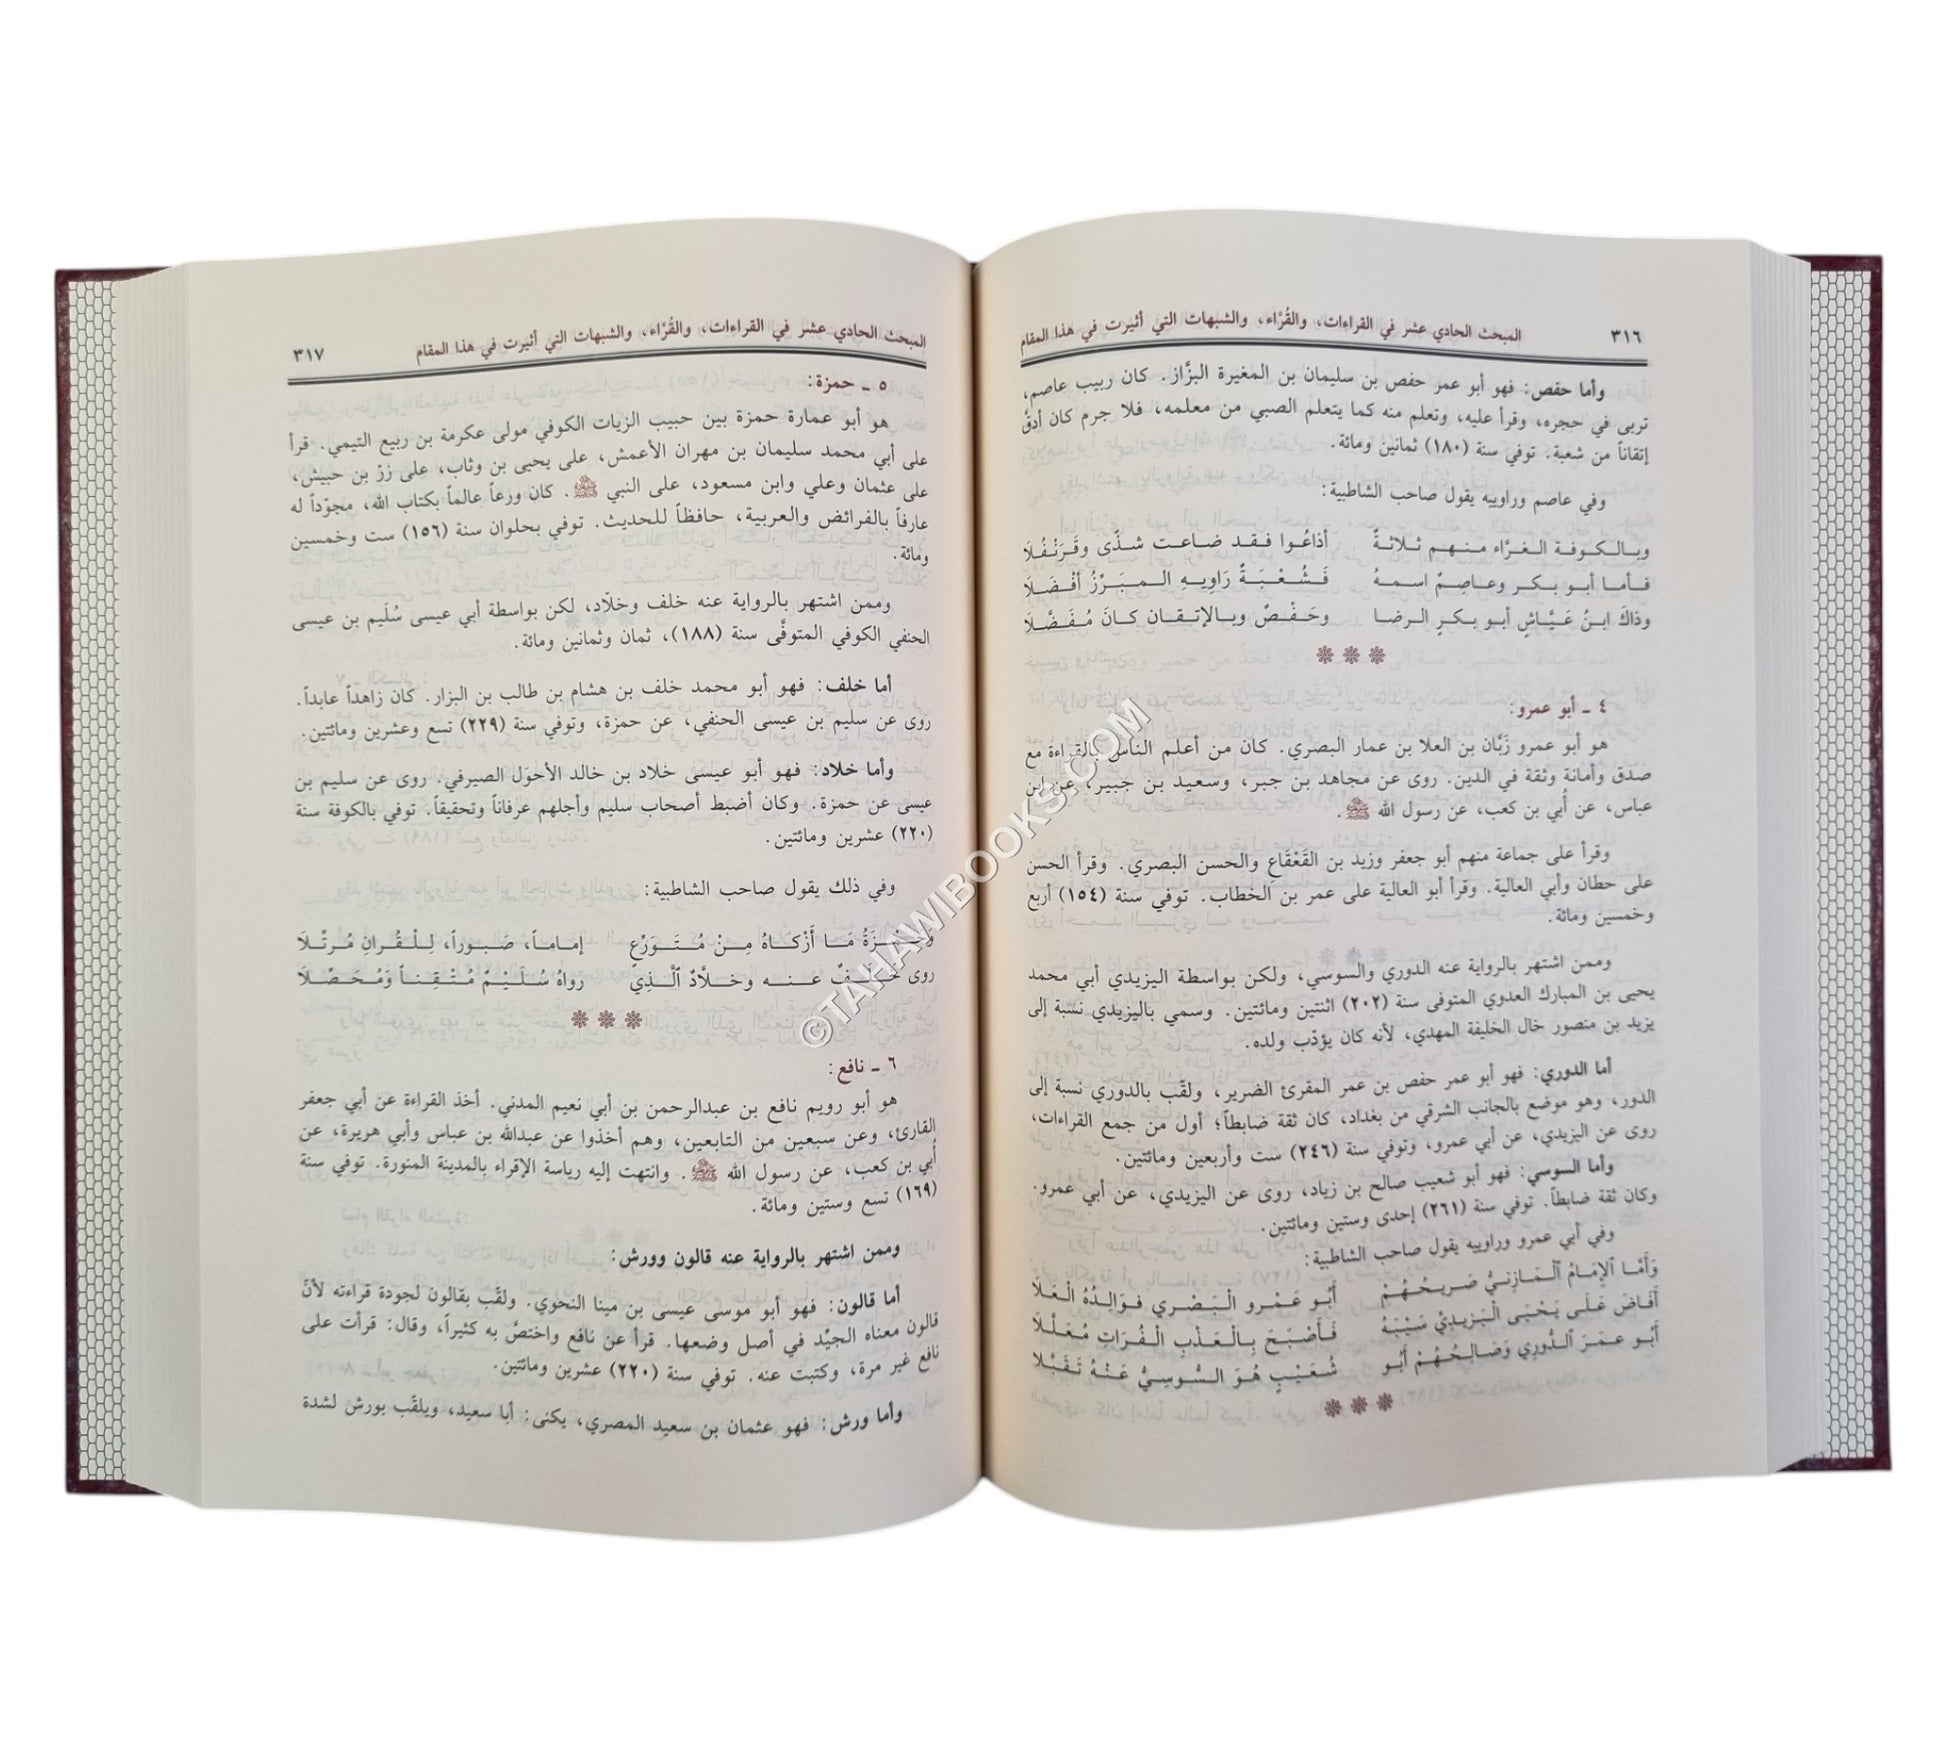 ٣١٦ المبحث الحادي عشر في القراءات، والقُرَّاء، والشبهات التي أثيرت في هذا المقام
وأما حفص: فهو أبو عمر حفص بن سليمان بن المغيرة البزَّاز. كان ربيب عاصم،
تربى في حجره، وقرأ عليه، وتعلم منه كما يتعلم الصبي من معلمه، فلا جرم كان أدقَّ
إتقاناً من شعبة. توفي سنة (١٨٠) ثمانين ومائة.
وفي عاصم وراوييه يقول صاحب الشاطبية:
وبالكوفة الغرَّاء منهم ثلاثةٌ أذاعُوا فقد ضاعت شذًى وقَرَنْفُلَا
فأما أبو بكر وعاصِمٌ اسمهُ فَشُعْبَةٌ رَاوِيهِ المبَرِّزُ أفْضَلَا
وذاكَ ابنُ عَيَّاشٍ أبو بكرٍ الرضا وحَفْصٌ وبالإتقان كانَ مُفَضَّلَا
٤ ـ أبو عمرو:
هو أبو عمرو زَبَّان بن العلا بن عمار البصري. كان من أعلم الناس بالقراءة مع
صدق وأمانة وثقة في الدين. روى عن مجاهد بن جبر، وسعيد بن جبير، عن ابن
عباس، عن أُبي بن كعب، عن رسول الله ﷺ.
وقرأ على جماعة منهم أبو جعفر وزيد بن القَعْقَاعِ والحسن البصري. وقرأ الحسن
على حطان وأبي العالية. وقرأ أبو العالية على عمر بن الخطاب. توفي سنة (١٥٤) أربع
وخمسين ومائة.
وممن اشتهر بالرواية عنه الدوري والسوسي، ولكن بواسطة اليزيدي أبي محمد
يحيى بن المبارك العدوي المتوفى سنة (٢٠٢) اثنتين ومائتين. وسمي باليزيدي نسبة إلى
يزيد بن منصور خال الخليفة المهدي، لأنه كان يؤدّب ولده.
أما الدوري: فهو أبو عمر حفص بن عمر المقرئ الضرير، ولقّب بالدوري نسبة إلى
الدور، وهو موضع بالجانب الشرقي من بغداد، كان ثقة ضابطاً؛ أول من جمع القراءات،
روى عن اليزيدي، عن أبي عمرو، وتوفي سنة (٢٤٦) ست وأربعين ومائتين.
وأما السوسي: فهو أبو شعيب صالح بن زياد، روى عن اليزيدي، عن أبي عمرو.
وكان ثقة ضابطاً. توفي سنة (٢٦١) إحدى وستين ومائتين.
وفي أبي عمرو وراوييه يقول صاحب الشاطبية:
وَأَمَّا الإمَامُ الْمَازِنيُّ صَرِيحُهُمْ أَبُو عَمْرو الْبَصْرِي فوَالِدُهُ الْعَلَا
أَفَاضَ عَلَى يَحْيَى الْيَزِيدِيِّ سَيْبَهُ فَأَصْبَحَ بِالْعَذْبِ الْفُرَاتِ مُعَلَّلَا
أَبُو عمَرَ الدُّورِي وَصَالِحُهُمْ أَبُو شُعَيْبٍ هُوَ السُّوسِيُّ عَنْهُ تَقَبَّلَا
المبحث الحادي عشر في القراءات، والقُرَّاء، والشبهات التي أثيرت في هذا المقام ٣١٧
٥ ـ حمزة:
هو أبو عمارة حمزة بين حبيب الزيات الكوفي مولى عكرمة بن ربيع التيمي. قرأ
على أبي محمد سليمان بن مهران الأعمش، على يحيى بن وثاب، على زرّ بن حبيش،
على عثمان وعلي وابن مسعود، على النبي ﷺ. كان ورعاً عالماً بكتاب الله، مجوّداً له
عارفاً بالفرائض والعربية، حافظاً للحديث. توفي بحلوان سنة (١٥٦) ست وخمسين
ومائة.
وممن اشتهر بالرواية عنه خلف وخلّاد، لكن بواسطة أبي عيسى سُلَيم بن عيسى
الحنفي الكوفي المتوفَّى سنة (١٨٨)، ثمان وثمانين ومائة.
أما خلف: فهو أبو محمد خلف بن هشام بن طالب بن البزار. كان زاهداً عابداً.
روى عن سليم بن عيسى الحنفي، عن حمزة، وتوفي سنة (٢٢٩) تسع وعشرين ومائتين.
وأما خلاد: فهو أبو عيسى خلاد بن خالد الأحوَل الصيرفي. روى عن سليم بن
عيسى عن حمزة. وكان أضبط أصحاب سليم وأجلهم عرفاناً وتحقيقاً. توفي بالكوفة سنة
(٢٢٠) عشرين ومائتين.
وفي ذلك يقول صاحب الشاطبية:
وحَمْزَةُ مَا أَزْكَاهُ مِنْ مُتَوَرِّعٍ إماماً، صَبوراً، لِلْقُرانِ مُرتِّلَا
روى خَلَفٌ عنه وخلَّادٌ الَّذِي رواهُ سُلَيْمٌ مُتْقِناً وَمُحَصِّلَا
٦ ـ نافع:
هو أبو رويم نافع بن عبدالرحمن بن أبي نعيم المدني. أخذ القراءة عن أبي جعفر
القارئ، وعن سبعين من التابعين، وهم أخذوا عن عبدالله بن عباس وأبي هريرة، عن
أُبي بن كعب، عن رسول الله ﷺ. وانتهت إليه رياسة الإقراء بالمدينة المنورة. توفي سنة
(١٦٩) تسع وستين ومائة.
وممن اشتهر بالرواية عنه قالون وورش:
أما قالون: فهو أبو موسى عيسى بن مينا النحوي. ولقّب بقالون لجودة قراءته لأنَّ
قالون معناه الجيِّد في أصل وضعها. قرأ عن نافع واختصَّ به كثيراً، وقال: قرأت على
نافع غير مرة، وكتبت عنه. توفي سنة (٢٢٠) عشرين ومائتين.
وأما ورش: فهو عثمان بن سعيد المصري، يكنى: أبا سعيد، ويلقّب بورش لشدة
©TAHAWIBOOKS.COM